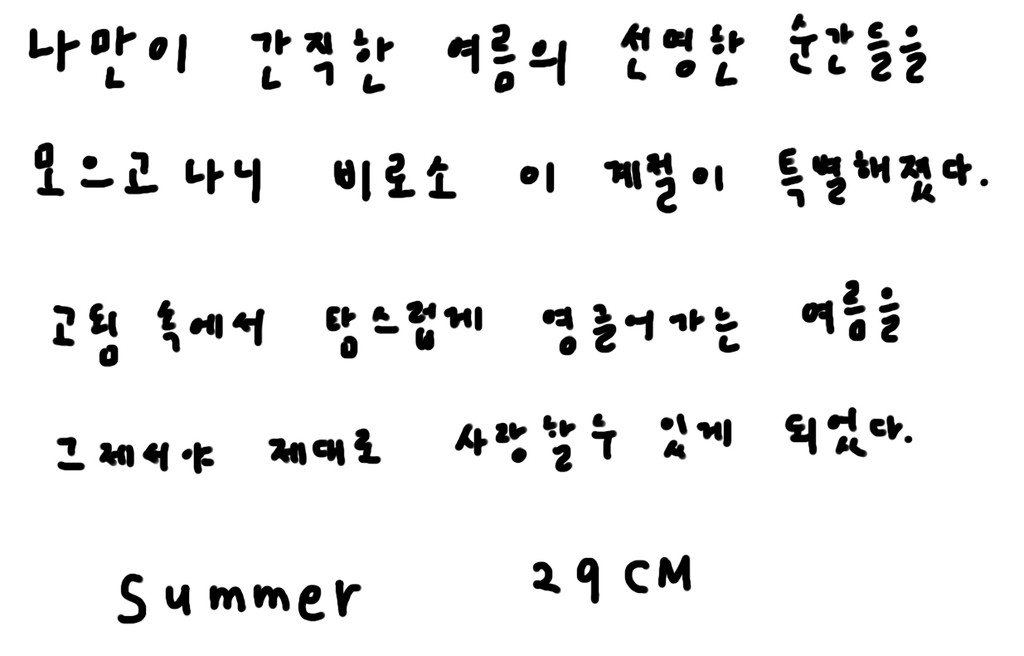 나만이 간직한 여름의 선명한 순간들을
모으고 나니 비로소 이 계절이 특별해졌다.
고됨 속에서 탐스럽게 영글어 가는 여름을
그제서야 제대로 사랑할 수 있게 되었다.
Summer 29CM